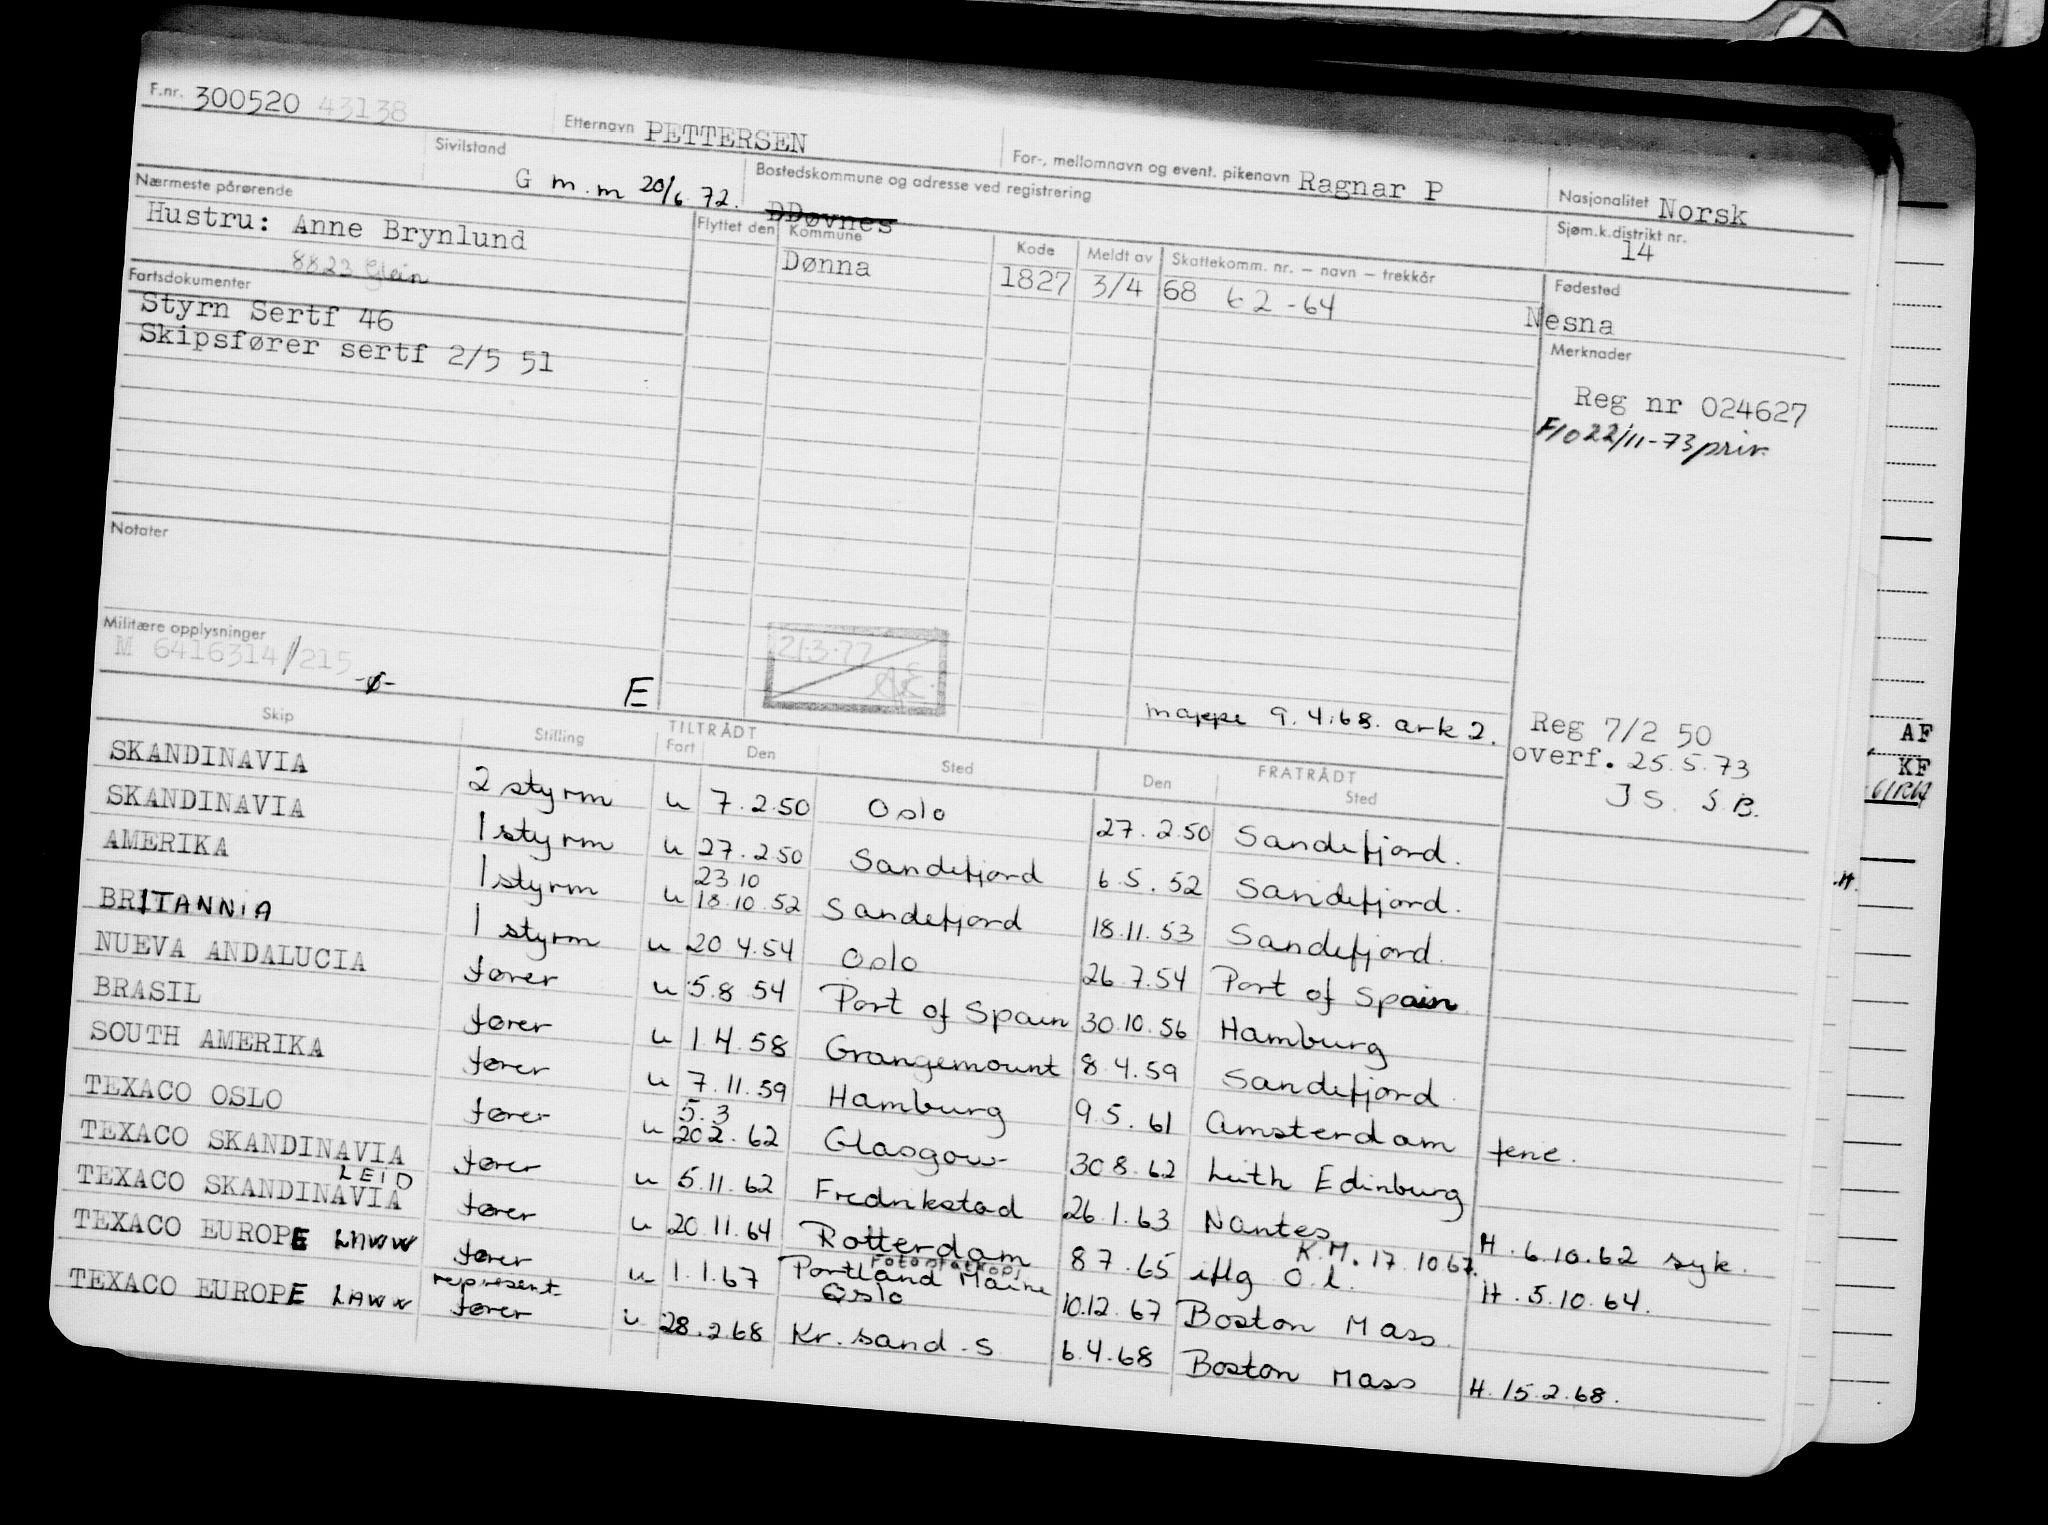 F.nr. 300520 43138 Etternavn PETTERSEN For-, mellomnavn og event. pikenavn Ragnar P Nasjonalitet Norsk
Sivilstand G m.m 20/6 72. Bostedskommune og adresse ved registrering DDøvnes Sjøm.k.distrikt nr. 14
Nærmeste pårørende
Hustru: Anne Brynlund
8823 Glein
Flyttet den Kommune Kode Meldt av Skattekomm. nr. – navn – trekkår Fødested
Dønna 1827 3/4 68 62-64 Nesna
Fartsdokumenter
Styrn Sertf 46
Skipsfører sertf 2/5 51
Merknader
Reg nr 024627
F/o 22/11-73 priv.
Notater
Militære opplysninger
M 6416314/215 -ø-
E
21·3·77
mappe 9.4.68. ark 2.
Reg 7/2 50
overf. 25.5.73
JS. S.B.
Skip Stilling TILTRÅDT FRATRÅDT
Fart Den Sted Den Sted
SKANDINAVIA 2 styrm u 7.2.50 Oslo 27.2.50 Sandefjord.
SKANDINAVIA 1 styrm u 27.2.50 Sandefjord 6.5.52 Sandefjord.
AMERIKA 1 styrm u 23 10 18.10.52 Sandefjord 18.11.53 Sandefjord.
BRITANNIA 1 styrm u 20 4.54 Oslo 26.7.54 Port of Spain
NUEVA ANDALUCIA fører u 5.8 54 Port of Spain 30.10.56 Hamburg
BRASIL fører u 1.4.58 Grangemount 8.4.59 Sandefjord
SOUTH AMERIKA fører u 7.11.59 Hamburg 9.5.61 Amsterdam ferie.
TEXACO OSLO fører u 5.3 20 2.62 Glasgow 30 8.62 Leith Edinburg
TEXACO SKANDINAVIA fører u 5.11.62 Fredrikstad 26.1.63 Nantes H. 6.10.62 syk.
TEXACO SKANDINAVIA LEID fører u 20.11.64 Rotterdam 8 7.65 iflg O.l. K.M. 17.10 67. H. 5.10.64.
TEXACO EUROPE LAWW fører u 1.1.67 Portland Maine Fotostatkopi 10.12.67 Boston Mass.
TEXACO EUROPE LAWW represent fører u 28.2.68 Oslo Kr.sand.S 6.4.68 Boston Mass H. 15.2.68.
AF
KF